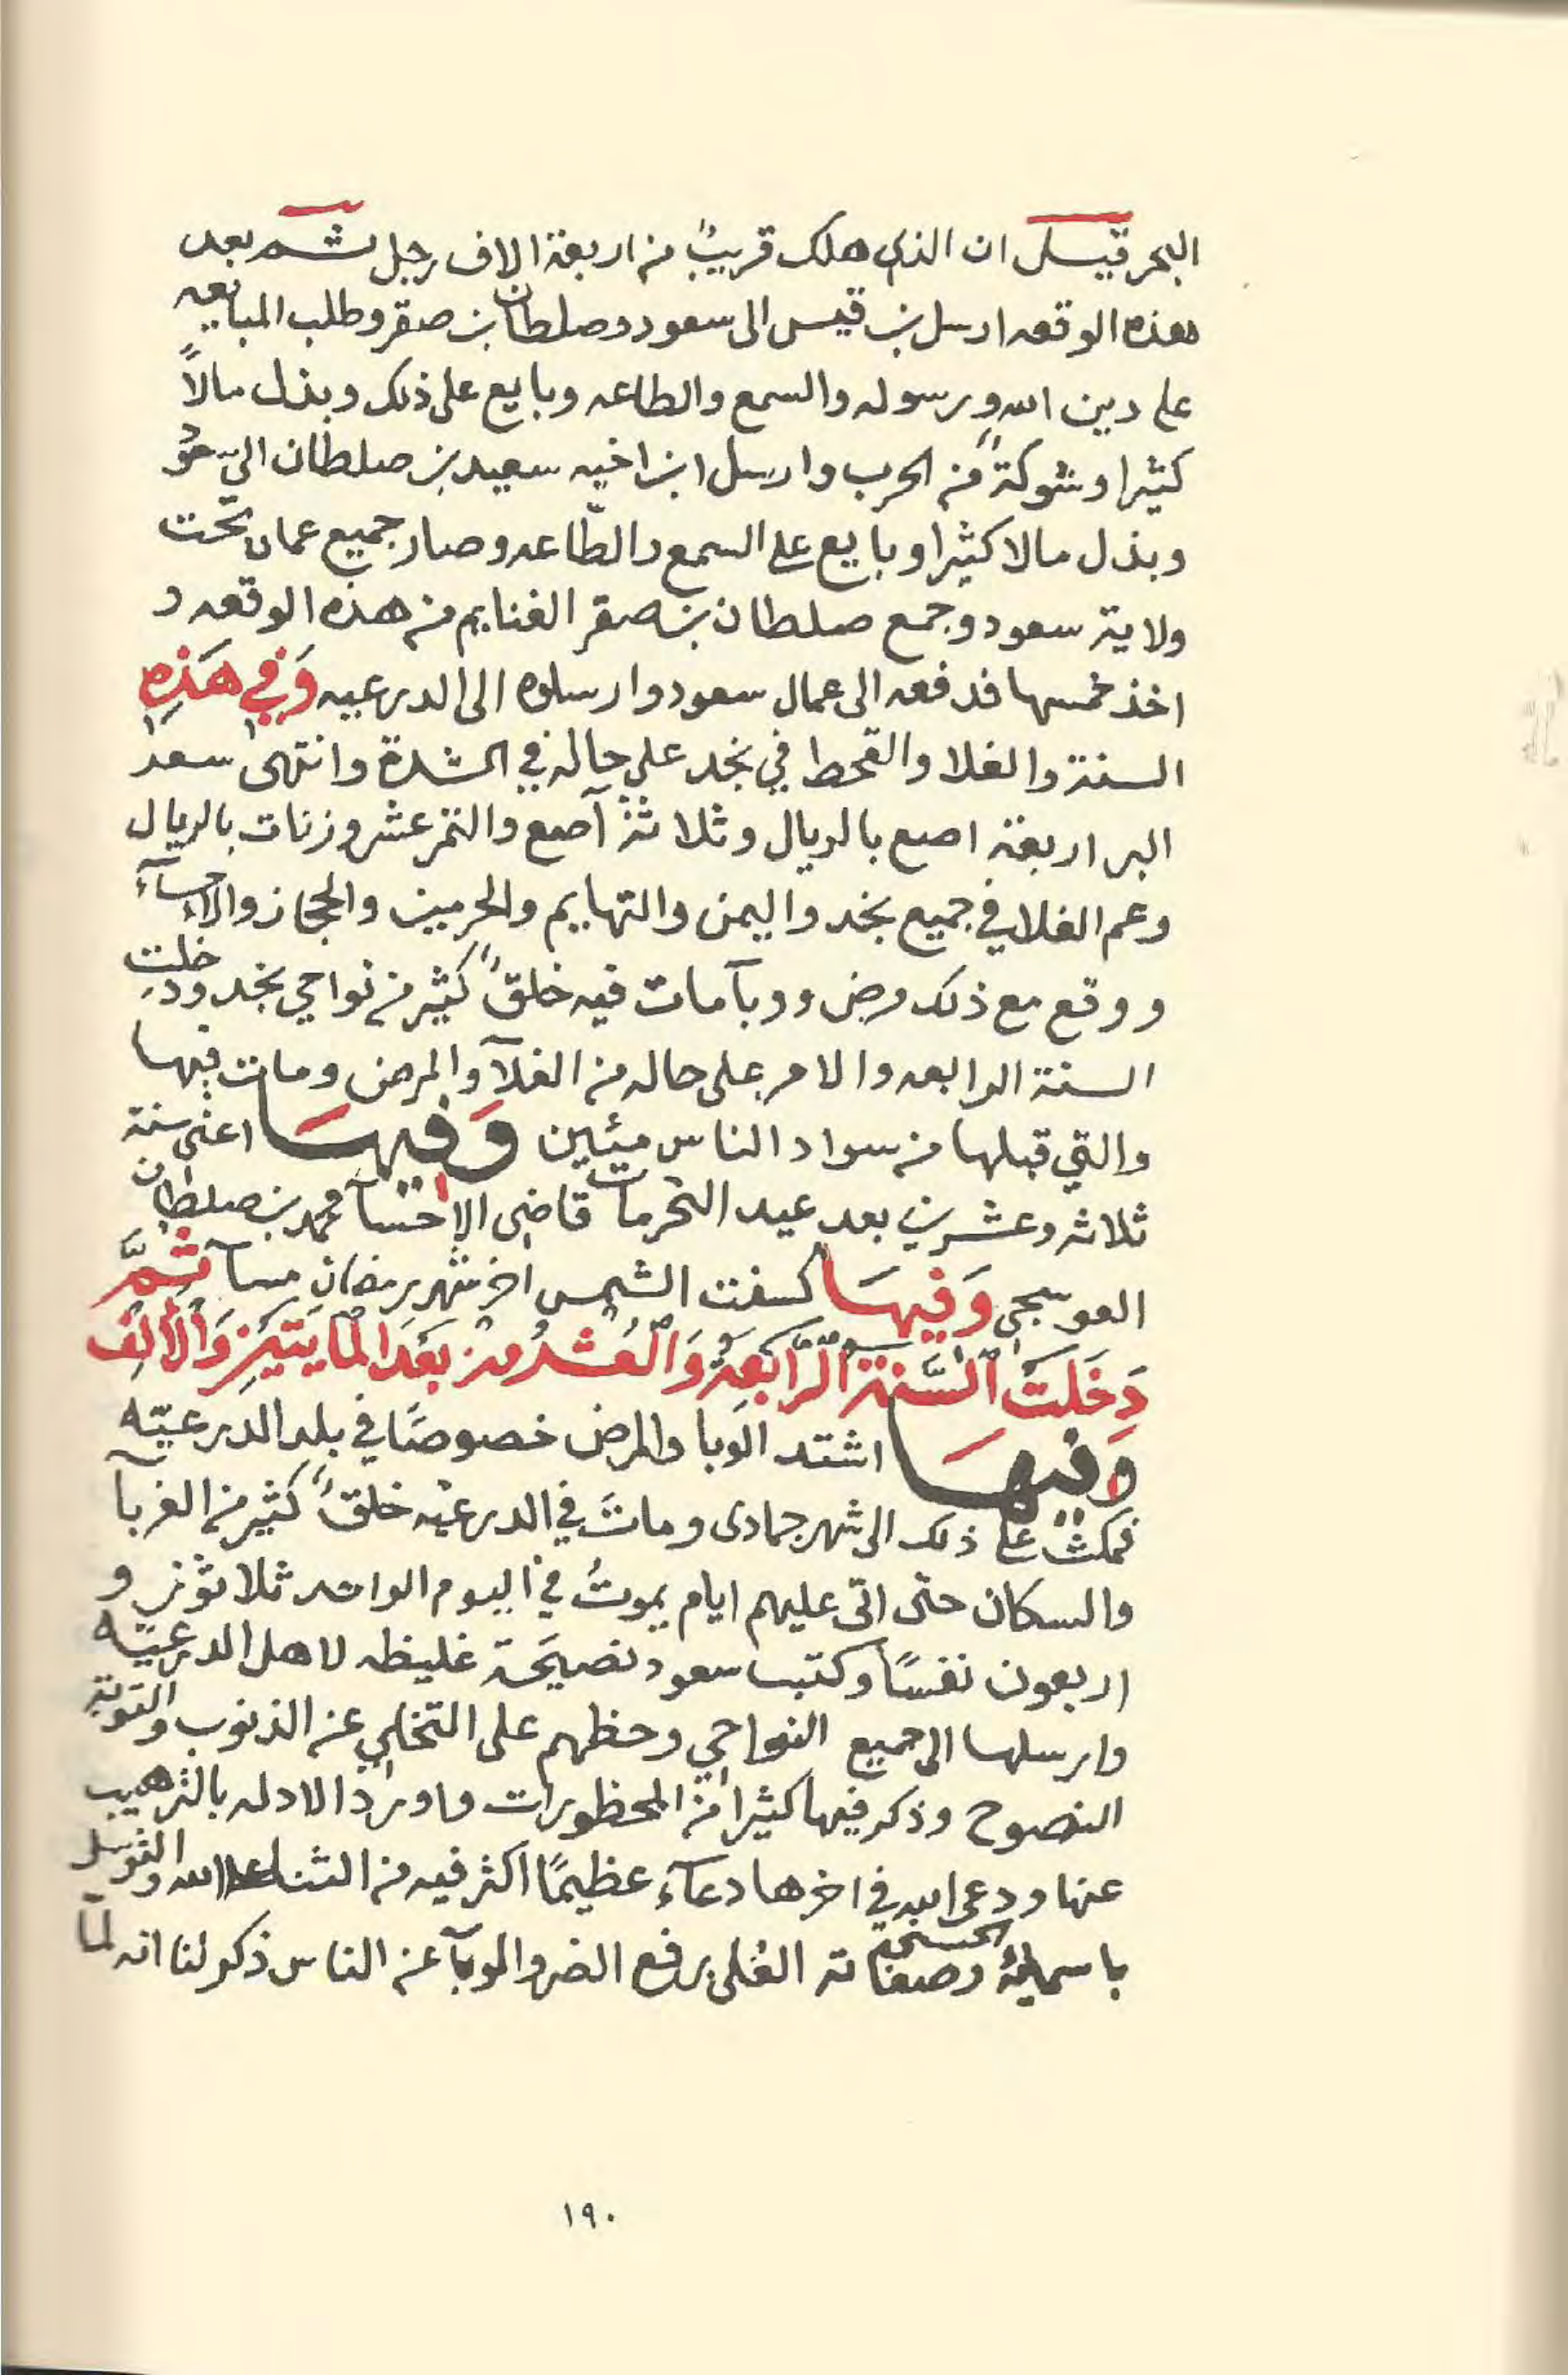 البحر قيل ان الذي هلك قريبٌ من اربعة الاف رجل ثم بعد
هذه الوقعه ارسل بن قيس الى سعود وصلطان بن صقر وطلب المبايعه
على دين الله ورسوله والسمع والطاعه وبايع على ذلك وبذل مالاً
كثيرا وشوكةً من الحرب وارسل ابن اخيه سعيد بن صلطان الى
وبذل مالا كثيرا وبايع على السمع والطّاعه وصار جميع عمان تحت
ولاية سعود وجمع صلطان بن صقر الغنايم من هذه الوقعه و
اخذ خمسها فدفعه الى عمال سعود وارسلوه الى الدرعيه وَفِي هَذِهِ
السنة والغلا والقحط في نجد على حاله في الشدة وانتهى سعر
البر اربعة اصع بالريال وثلاثة آصع والتمر عشر وزنات بالريال
وعم الغلا في جميع نجد واليمن والتهايم والحرمين والحجاز والاحسآء
ووقع مع ذلك مرض ووبآ مات فيه خلقٌ كثير من نواحي نجد ودخلت
السنة الرابعه والامر على حاله من الغلآ والمرض ومات فيها
والتي قبلها من سواد الناس مئين وَفيهَا اعني سنة
ثلاثه وعشرين بعد عيد النحر مات قاضي الاحسآ محمد بن صلطان
العوسجي وَفيهَا كسفت الشمس اخر شهر رمضان مسآ ثُمَّ
دَخَلَتْ السَّنة الرَّابعةُ وَالعُشرُ من بَعْدَ المايَتَينِ وَالأَلف
وفيهَا اشتد الوَبا والمرض خصوصًا في بلد الدرعيّه
فمكث على ذلك الى شهر جمادى وماتَ في الدرعيّه خلقٌ كثير من الغربآ
والسكان حتى اتى عليهم ايام يموتُ في اليوم الواحد ثلاثون و
اربعون نفسًا وكتب سعود نصيحَة غليظه لاهل الدرعيّه
وارسلها الى جميع النواحي وحظهم على التخلي عن الذنوب والتوبة
النصوح وذكر فيها كثيرا من المحظورات واورد الادله بالترهيب
عنها ودعى الله في اخرها دعآء عظيمًا اكثر فيه من الثنا على الله والتوسل
باسمايهُ الحسنى وصفاته العُلى برفع الضر والوبآ عن الناس ذكر لنا انه لمّا
١٩٠